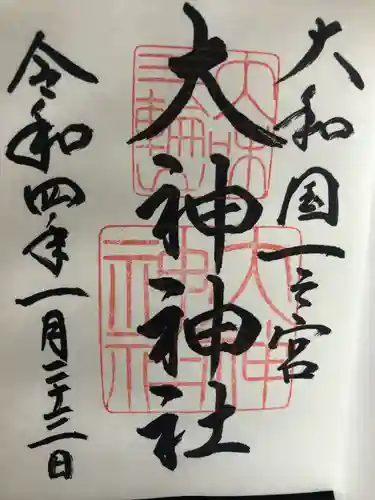 大和国一之宮
大神神社
令和四年一月二十三日
三輪
大神
神社